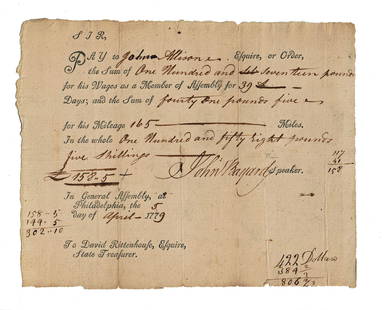 SIR,
PAY to John Allison, Esquire, or Order,
the Sum of One Hundred and seventeen pounds
for his Wages as a Member of Assembly for 39
Days; and the Sum of fourty one pounds five
for his Mileage 165 Miles.
In the whole One Hundred and fifty Eight pounds
five Shillings
£ 158.5 John Bayard Speaker.
117
41
158
In General Assembly, at
Philadelphia, the 5
day of April 1779
158-5
302-10
To David Rittenhouse, Esquire,
State Treasurer.
422 Dollars
384
806